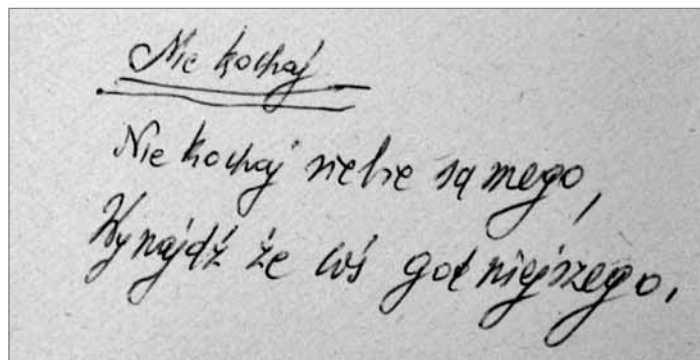 Nie kochaj
Nie kochaj siebie są mego,
Wynajdź że coś godniejszego.